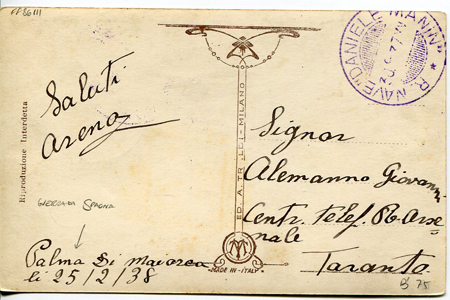 Saluti
Arena
Riproduzione Interdetta
GUERRA DA SPAGNA
Palma Di Maiorca
li 25/2/38
ED. A. TR LDI - MILANO
"MADE IN ITALY"
R. NAVE "DANIELE MANIN"
Signor
Alemanno Giovanni
Centr. Telef. R. Arse-
nale
Taranto